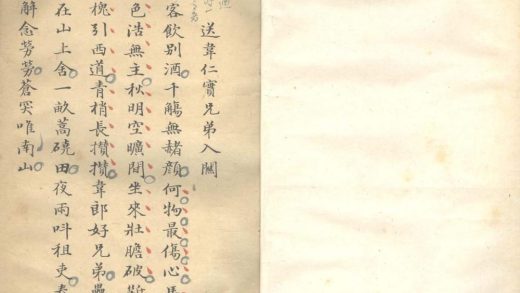 送韋仁實兄弟入關
客飲別酒千觴無赭顏何物最傷心馬
色浩無主秋明空曠間坐來壯膽破斷
槐引西道青梢長攢攢韋郎好兄弟疊
在山上舍一畝蒿磽田夜雨呌租吏舂
解念勞勞蒼突唯南山